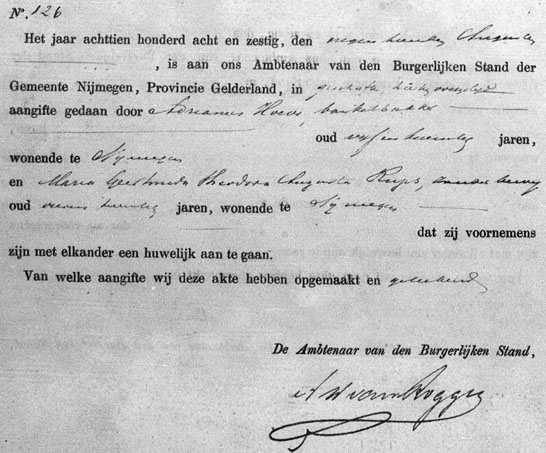 No. 126
Het jaar achttien honderd acht en zestig, den negen Augustus
, is aan ons Ambtenaar van den Burgerlijken Stand der
Gemeente Nijmegen, Provincie Gelderland, in
aangifte gedaan door Adrianus Hoeve, banketbakker
oud vijf en twintig jaren,
wonende te Nijmegen
en Maria Geertruida Theodora Augusta zonder beroep
oud twintig jaren, wonende te Nijmegen
dat zij voornemens
zijn met elkander een huwelijk aan te gaan.
Van welke aangifte wij deze akte hebben opgemaakt en geteekend
De Ambtenaar van den Burgerlijken Stand,